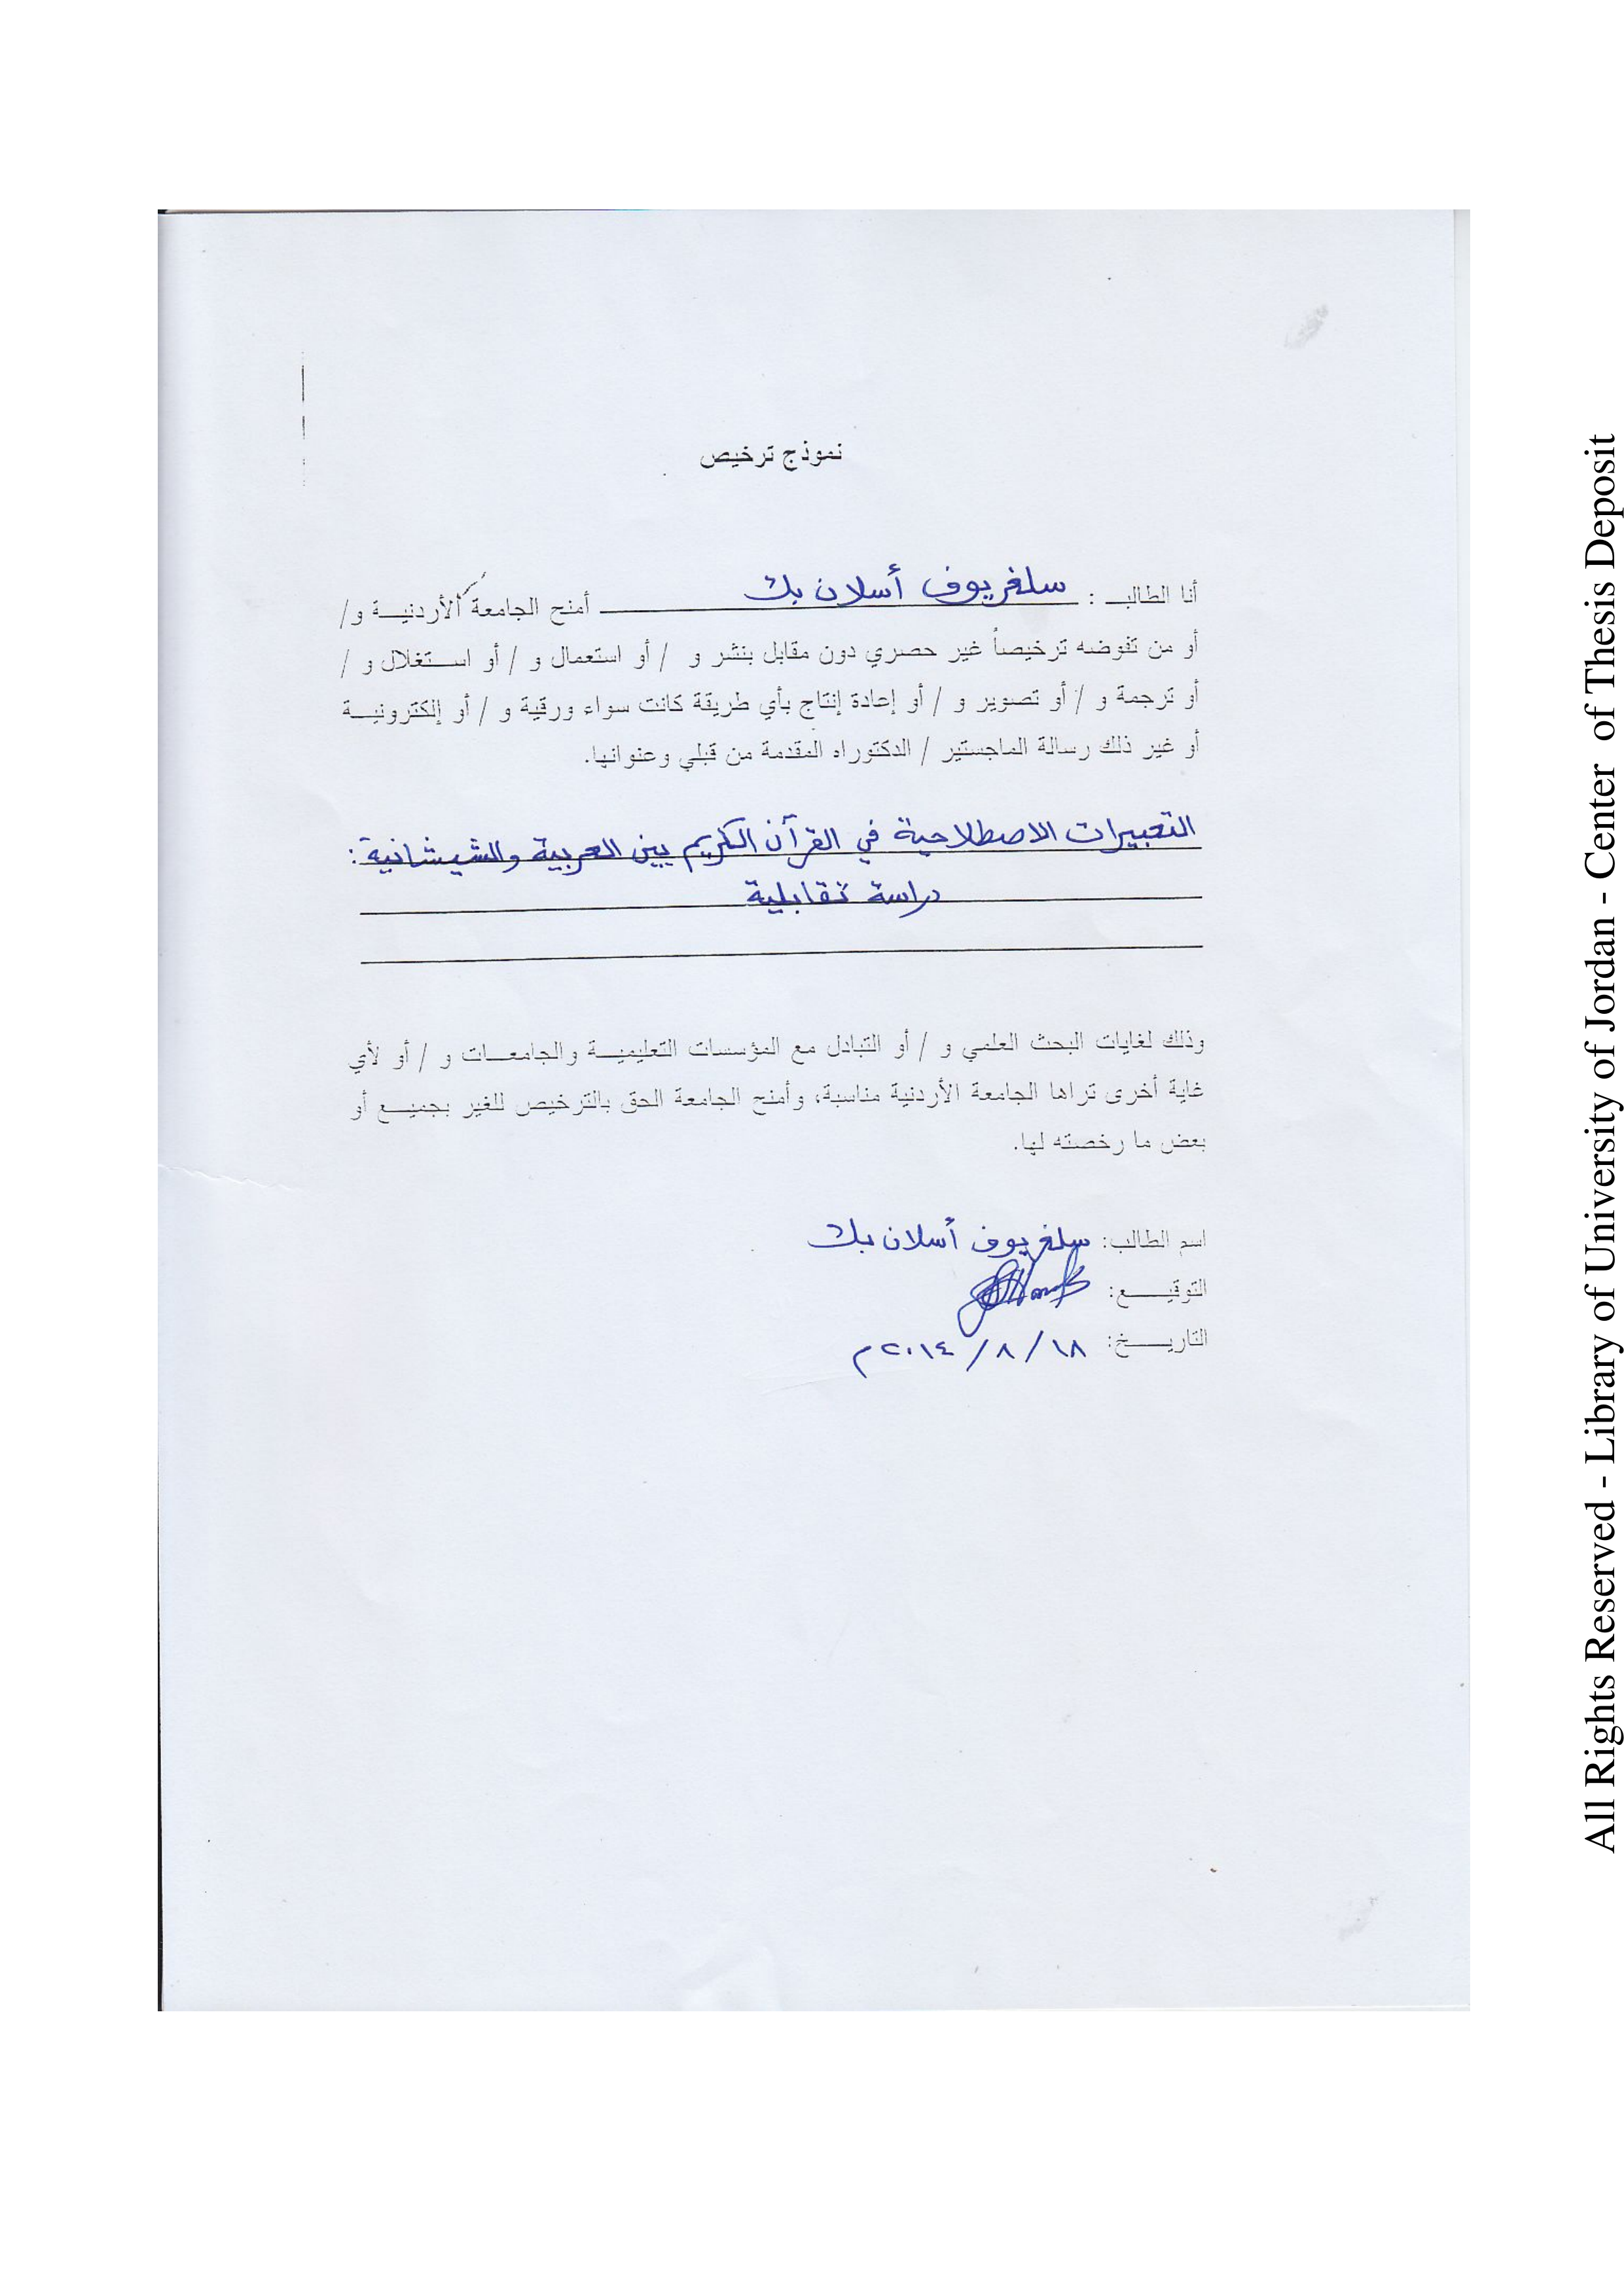 نموذج ترخيص
أنا الطالب : سلغريوف أسلان بك أمنح الجامعة الأردنية و/
أو من تفوضه ترخيصاً غير حصري دون مقابل بنشر و / أو استعمال و / أو استغلال و /
أو ترجمة و / أو تصوير و / أو إعادة إنتاج بأي طريقة كانت سواء ورقية و / أو إلكترونية
أو غير ذلك رسالة الماجستير / الدكتوراه المقدمة من قبلي وعنوانها.
التعبيرات الاصطلاحية في القرآن الكريم بين العربية والشيشانية:
دراسة تقابلية
وذلك لغايات البحث العلمي و / أو التبادل مع المؤسسات التعليمية والجامعات و / أو لأي
غاية أخرى تراها الجامعة الأردنية مناسبة، وأمنح الجامعة الحق بالترخيص للغير بجميع أو
بعض ما رخصته لها.
اسم الطالب: سلغريوف أسلان بك
التوقيع:
التاريخ: ١٨ / ٨ / ٢٠١٤م
All Rights Reserved - Library of University of Jordan - Center of Thesis Deposit